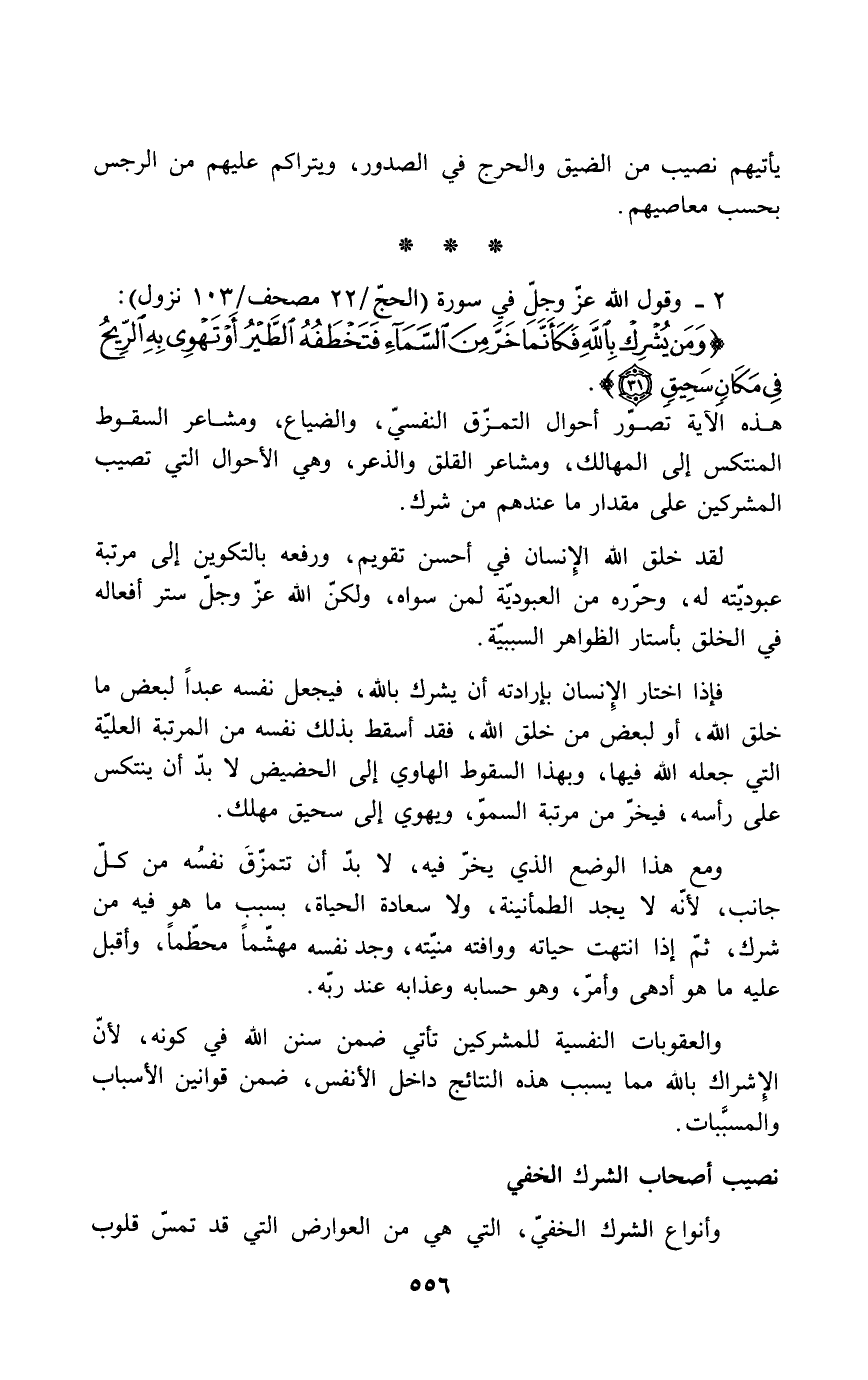 يأتيهم نصيب من الضيق والحرج في الصدور، ويتراكم عليهم من الرجس
بحسب معاصيهم.
* * *
٢ - وقول الله عزّ وجلّ في سورة (الحجّ/٢٢ مصحف/١٠٣ نزول):
﴿وَمَن يُشْرِكْ بِٱللَّهِ فَكَأَنَّمَا خَرَّ مِنَ ٱلسَّمَآءِ فَتَخْطَفُهُ ٱلطَّيْرُ أَوْ تَهْوِى بِهِ ٱلرِّيحُ
فِى مَكَانٍ سَحِيقٍ ٣١﴾.
هـذه الآية تصـوّر أحوال التمـزّق النفسيّ، والضياع، ومشـاعر السقـوط
المنتكس إلى المهالك، ومشاعر القلق والذعر، وهي الأحوال التي تصيب
المشركين على مقدار ما عندهم من شرك.
لقد خلق الله الإنسان في أحسن تقويم، ورفعه بالتكوين إلى مرتبة
عبوديّته له، وحرّره من العبوديّة لمن سواه، ولكنّ الله عزّ وجلّ ستر أفعاله
في الخلق بأستار الظواهر السببيّة.
فإذا اختار الإنسان بإرادته أن يشرك بالله، فيجعل نفسه عبداً لبعض ما
خلق الله، أو لبعض من خلق الله، فقد أسقط بذلك نفسه من المرتبة العليّة
التي جعله الله فيها، وبهذا السقوط الهاوي إلى الحضيض لا بدّ أن ينتكس
على رأسه، فيخرّ من مرتبة السموّ، ويهوي إلى سحيق مهلك.
ومع هذا الوضع الذي يخرّ فيه، لا بدّ أن تتمزّقَ نفسُه من كـلّ
جانب، لأنّه لا يجد الطمأنينة، ولا سعادة الحياة، بسبب ما هو فيه من
شرك، ثمّ إذا انتهت حياته ووافته منيّته، وجد نفسه مهشّماً محطّماً، وأقبل
عليه ما هو أدهى وأمرّ، وهو حسابه وعذابه عند ربّه.
والعقوبات النفسية للمشركين تأتي ضمن سنن الله في كونه، لأنّ
الإشراك بالله مما يسبب هذه النتائج داخل الأنفس، ضمن قوانين الأسباب
والمسبَّبات.
نصيب أصحاب الشرك الخفي
وأنواع الشرك الخفيّ، التي هي من العوارض التي قد تمسّ قلوب
٥٥٦